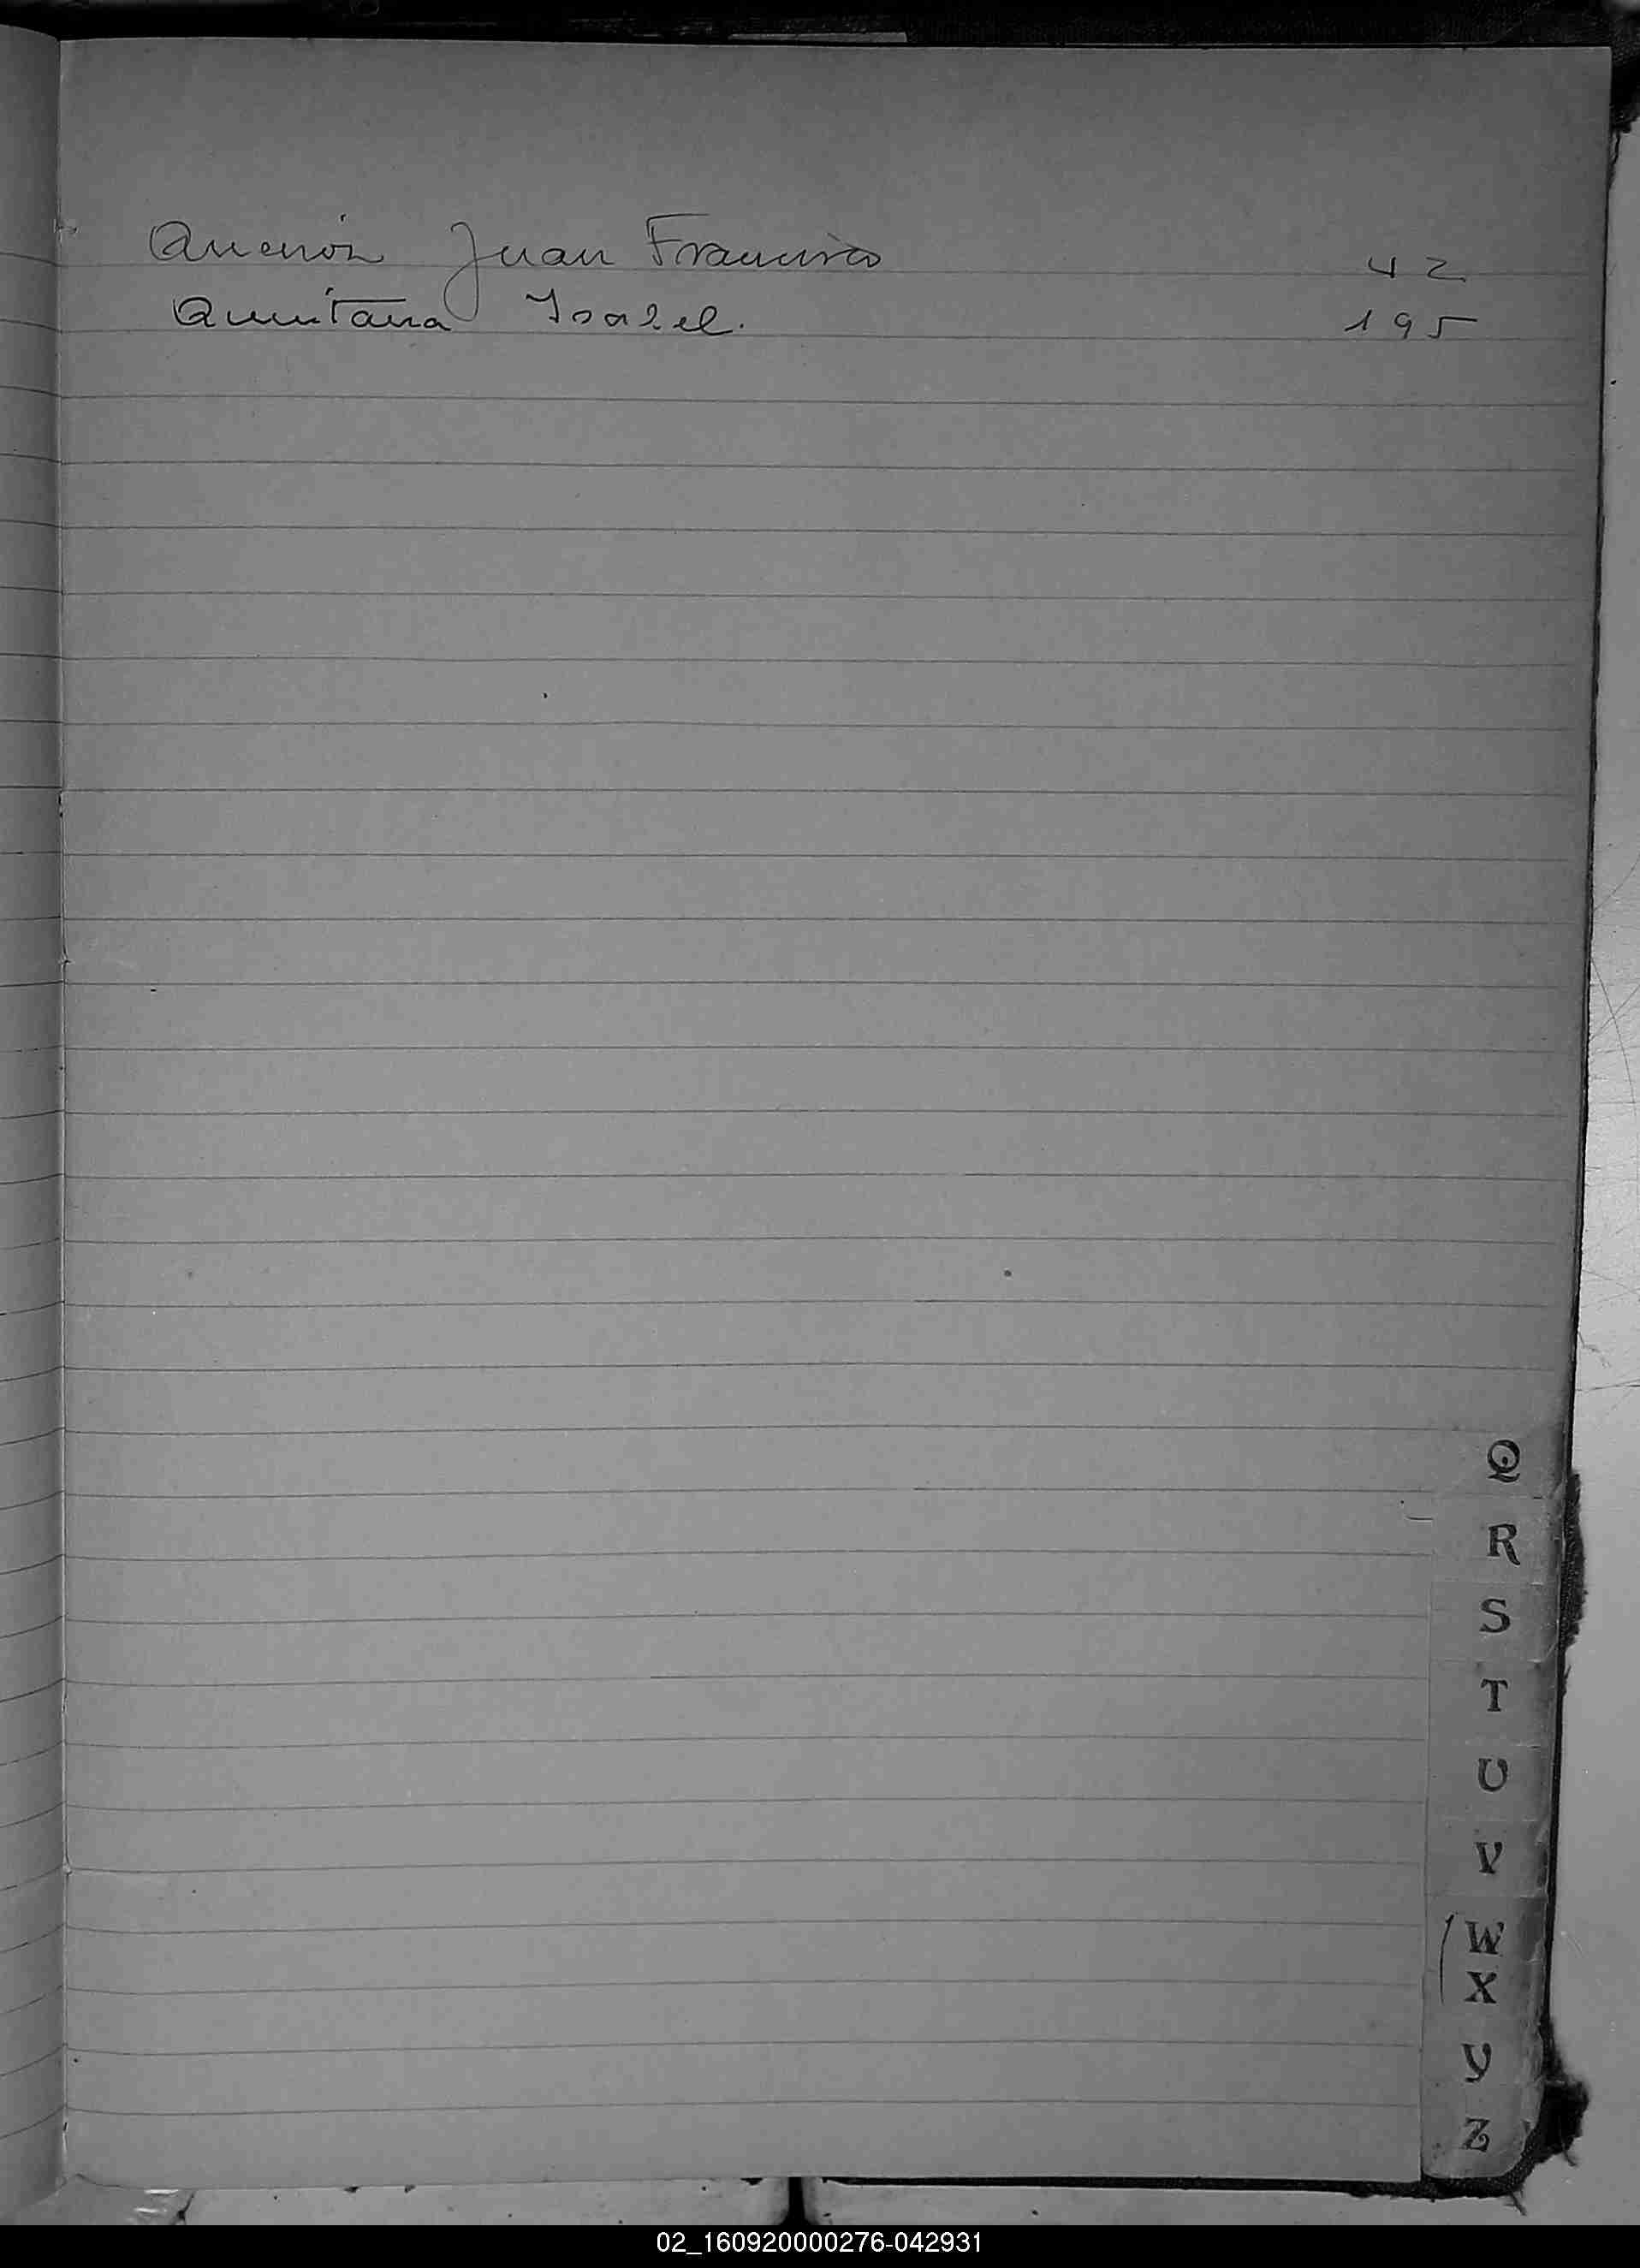 Juan Francisco 42
Quintana Isabel. 195
Q
R
S
T
U
V
W
X
Y
Z
02_160920000276-042931